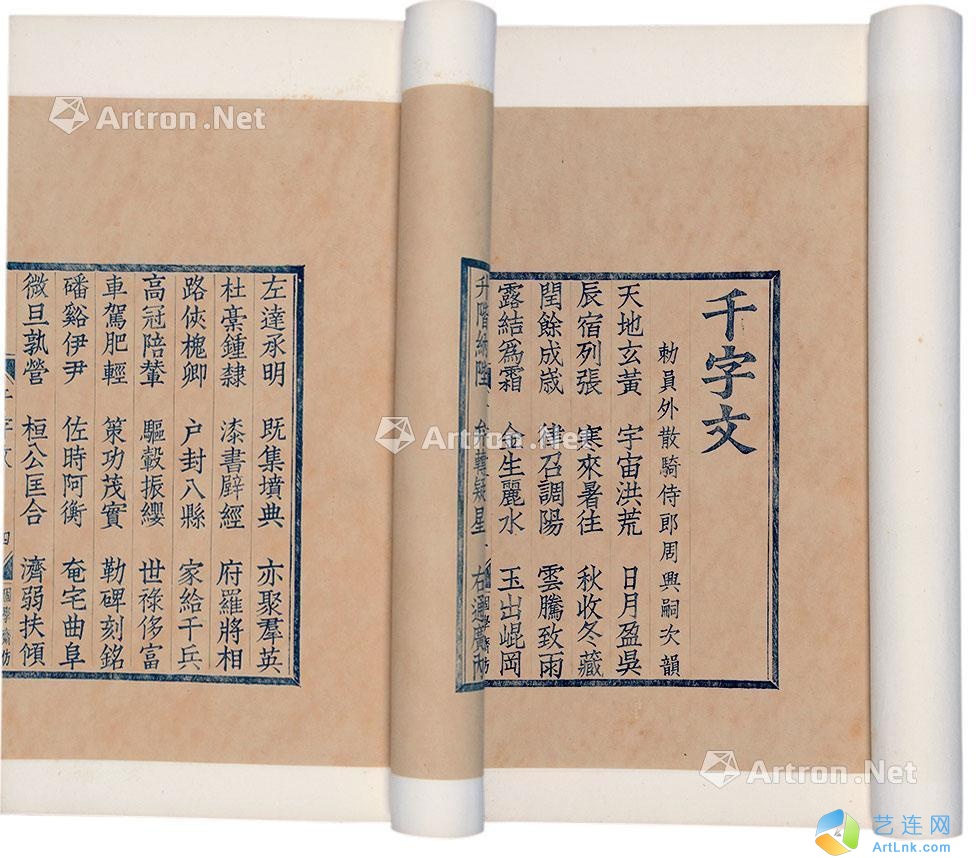 千字文
勅員外散騎侍郎周興嗣次韻
天地玄黃 宇宙洪荒 日月盈昃
辰宿列張 寒來暑往 秋收冬藏
閏餘成歲 律召調陽 雲騰致雨
露結爲霜 金生麗水 玉出崐岡
升階納陛 弁轉疑星 右通廣內
左達承明 既集墳典 亦聚羣英
杜稾鍾隸 漆書壁經 府羅將相
路俠槐卿 户封八縣 家給千兵
高冠陪輦 驅轂振纓 世祿侈富
車駕肥輕 策功茂實 勒碑刻銘
磻谿伊尹 佐時阿衡 奄宅曲阜
微旦孰營 桓公匡合 濟弱扶傾
千字文 四
Artron.Net
Artron.Net
Artron.Net
艺连网
ArtLnk.com